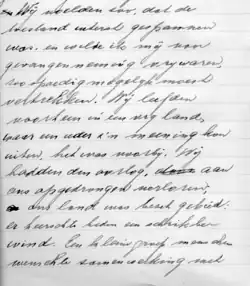 Wij voelden dat de
toestand uiterst gespannen
was. en wilde ik mij voor
gevangenneming vrijwaren,
zoo spoedig mogelijk moest
vertrekken. Wij leefden
voorheen in een vrij land,
waar een ieder z'n meening kon
uiten, het was voorbij. Wij
hadden den oorlog, aan
ons opgedrongen verloren,
ons land was bezet gebied.
er heerschte een schrikbe
wind. Een kleine groep menschen
wenschte samenwerking met